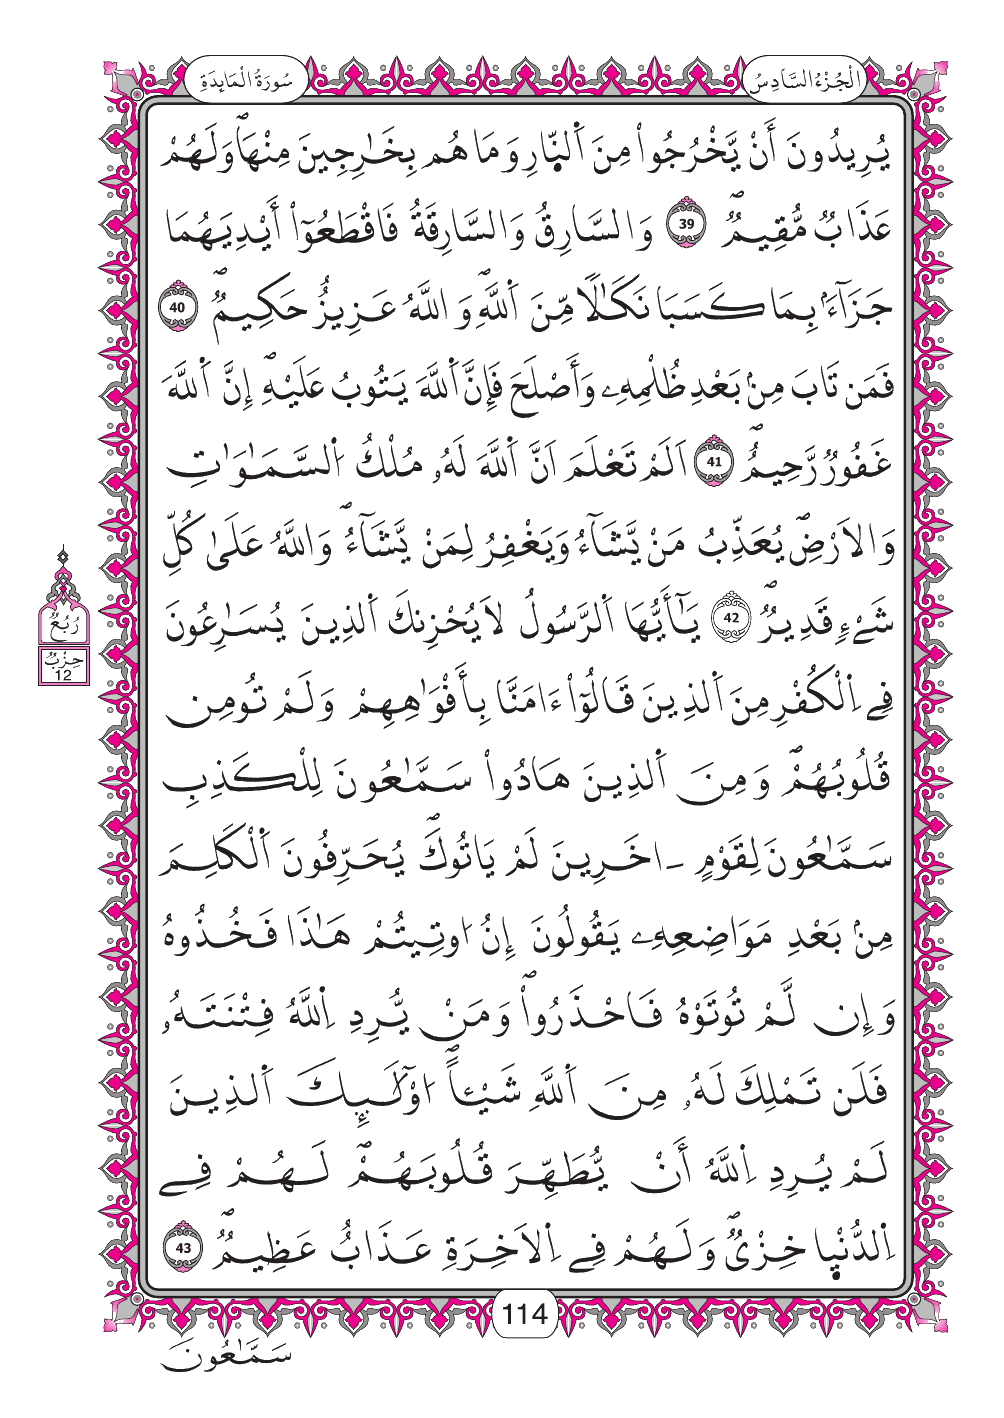 الْجُزْءُ السَّادِسُ
سُورَةُ الْمَائِدَةِ
يُرِيدُونَ أَنْ يَّخْرُجُواْ مِنَ اَ۬لنّ۪ارِ وَمَا هُم بِخَٰرِجِينَ مِنْهَاۖ وَلَهُمْ
عَذَابٌ مُّقِيمٌۖ 39 وَالسَّارِقُ وَالسَّارِقَةُ فَاقْطَعُوٓاْ أَيْدِيَهُمَا
جَزَآءَۢ بِمَا كَسَبَا نَكَٰلاً مِّنَ اَ۬للَّهِۖ وَاللَّهُ عَزِيزٌ حَكِيمٌۖ 40
فَمَن تَابَ مِنۢ بَعْدِ ظُلْمِهِۦ وَأَصْلَحَ فَإِنَّ اَ۬للَّهَ يَتُوبُ عَلَيْهِۖ إِنَّ اَ۬للَّهَ
غَفُورٌ رَّحِيمٌۖ 41 اَلَمْ تَعْلَمَ اَنَّ اَ۬للَّهَ لَهُۥ مُلْكُ اُ۬لسَّمَٰوَٰتِ
وَالَارْضِۖ يُعَذِّبُ مَنْ يَّشَآءُ وَيَغْفِرُ لِمَنْ يَّشَآءُۖ وَاللَّهُ عَلَىٰ كُلِّ
شَےْءٍ قَدِيرٌۖ 42 يَٰٓأَيُّهَا اَ۬لرَّسُولُ لَا يُحْزِنكَ اَ۬لذِينَ يُسَٰرِعُونَ
فِے اِ۬لْكُفْرِ مِنَ اَ۬لذِينَ قَالُوٓاْ ءَامَنَّا بِأَفْوَٰهِهِمْ وَلَمْ تُومِن
قُلُوبُهُمْۖ وَمِنَ اَ۬لذِينَ هَادُواْ سَمَّٰعُونَ لِلْكَذِبِ
سَمَّٰعُونَ لِقَوْمٍ ـ اخَرِينَ لَمْ يَاتُوكَۖ يُحَرِّفُونَ اَ۬لْكَلِمَ
مِنۢ بَعْدِ مَوَاضِعِهِۦ يَقُولُونَ إِنُ اوتِيتُمْ هَٰذَا فَخُذُوهُ
وَإِن لَّمْ تُوتَوْهُ فَاحْذَرُواْۖ وَمَنْ يُّرِدِ اِ۬للَّهُ فِتْنَتَهُۥ
فَلَن تَمْلِكَ لَهُۥ مِنَ اَ۬للَّهِ شَيْـٔاًۖ اُوْلَٰٓئِكَ اَ۬لذِينَ
لَمْ يُرِدِ اِ۬للَّهُ أَنْ يُّطَهِّرَ قُلُوبَهُمْۖ لَهُمْ فِے
اِ۬لدُّنْي۪ا خِزْيٌۖ وَلَهُمْ فِے اِ۬لَاخِرَةِ عَذَابٌ عَظِيمٌۖ 43
رُبُعُ
حِزْبٌ
12
114
سَمَّٰعُونَ